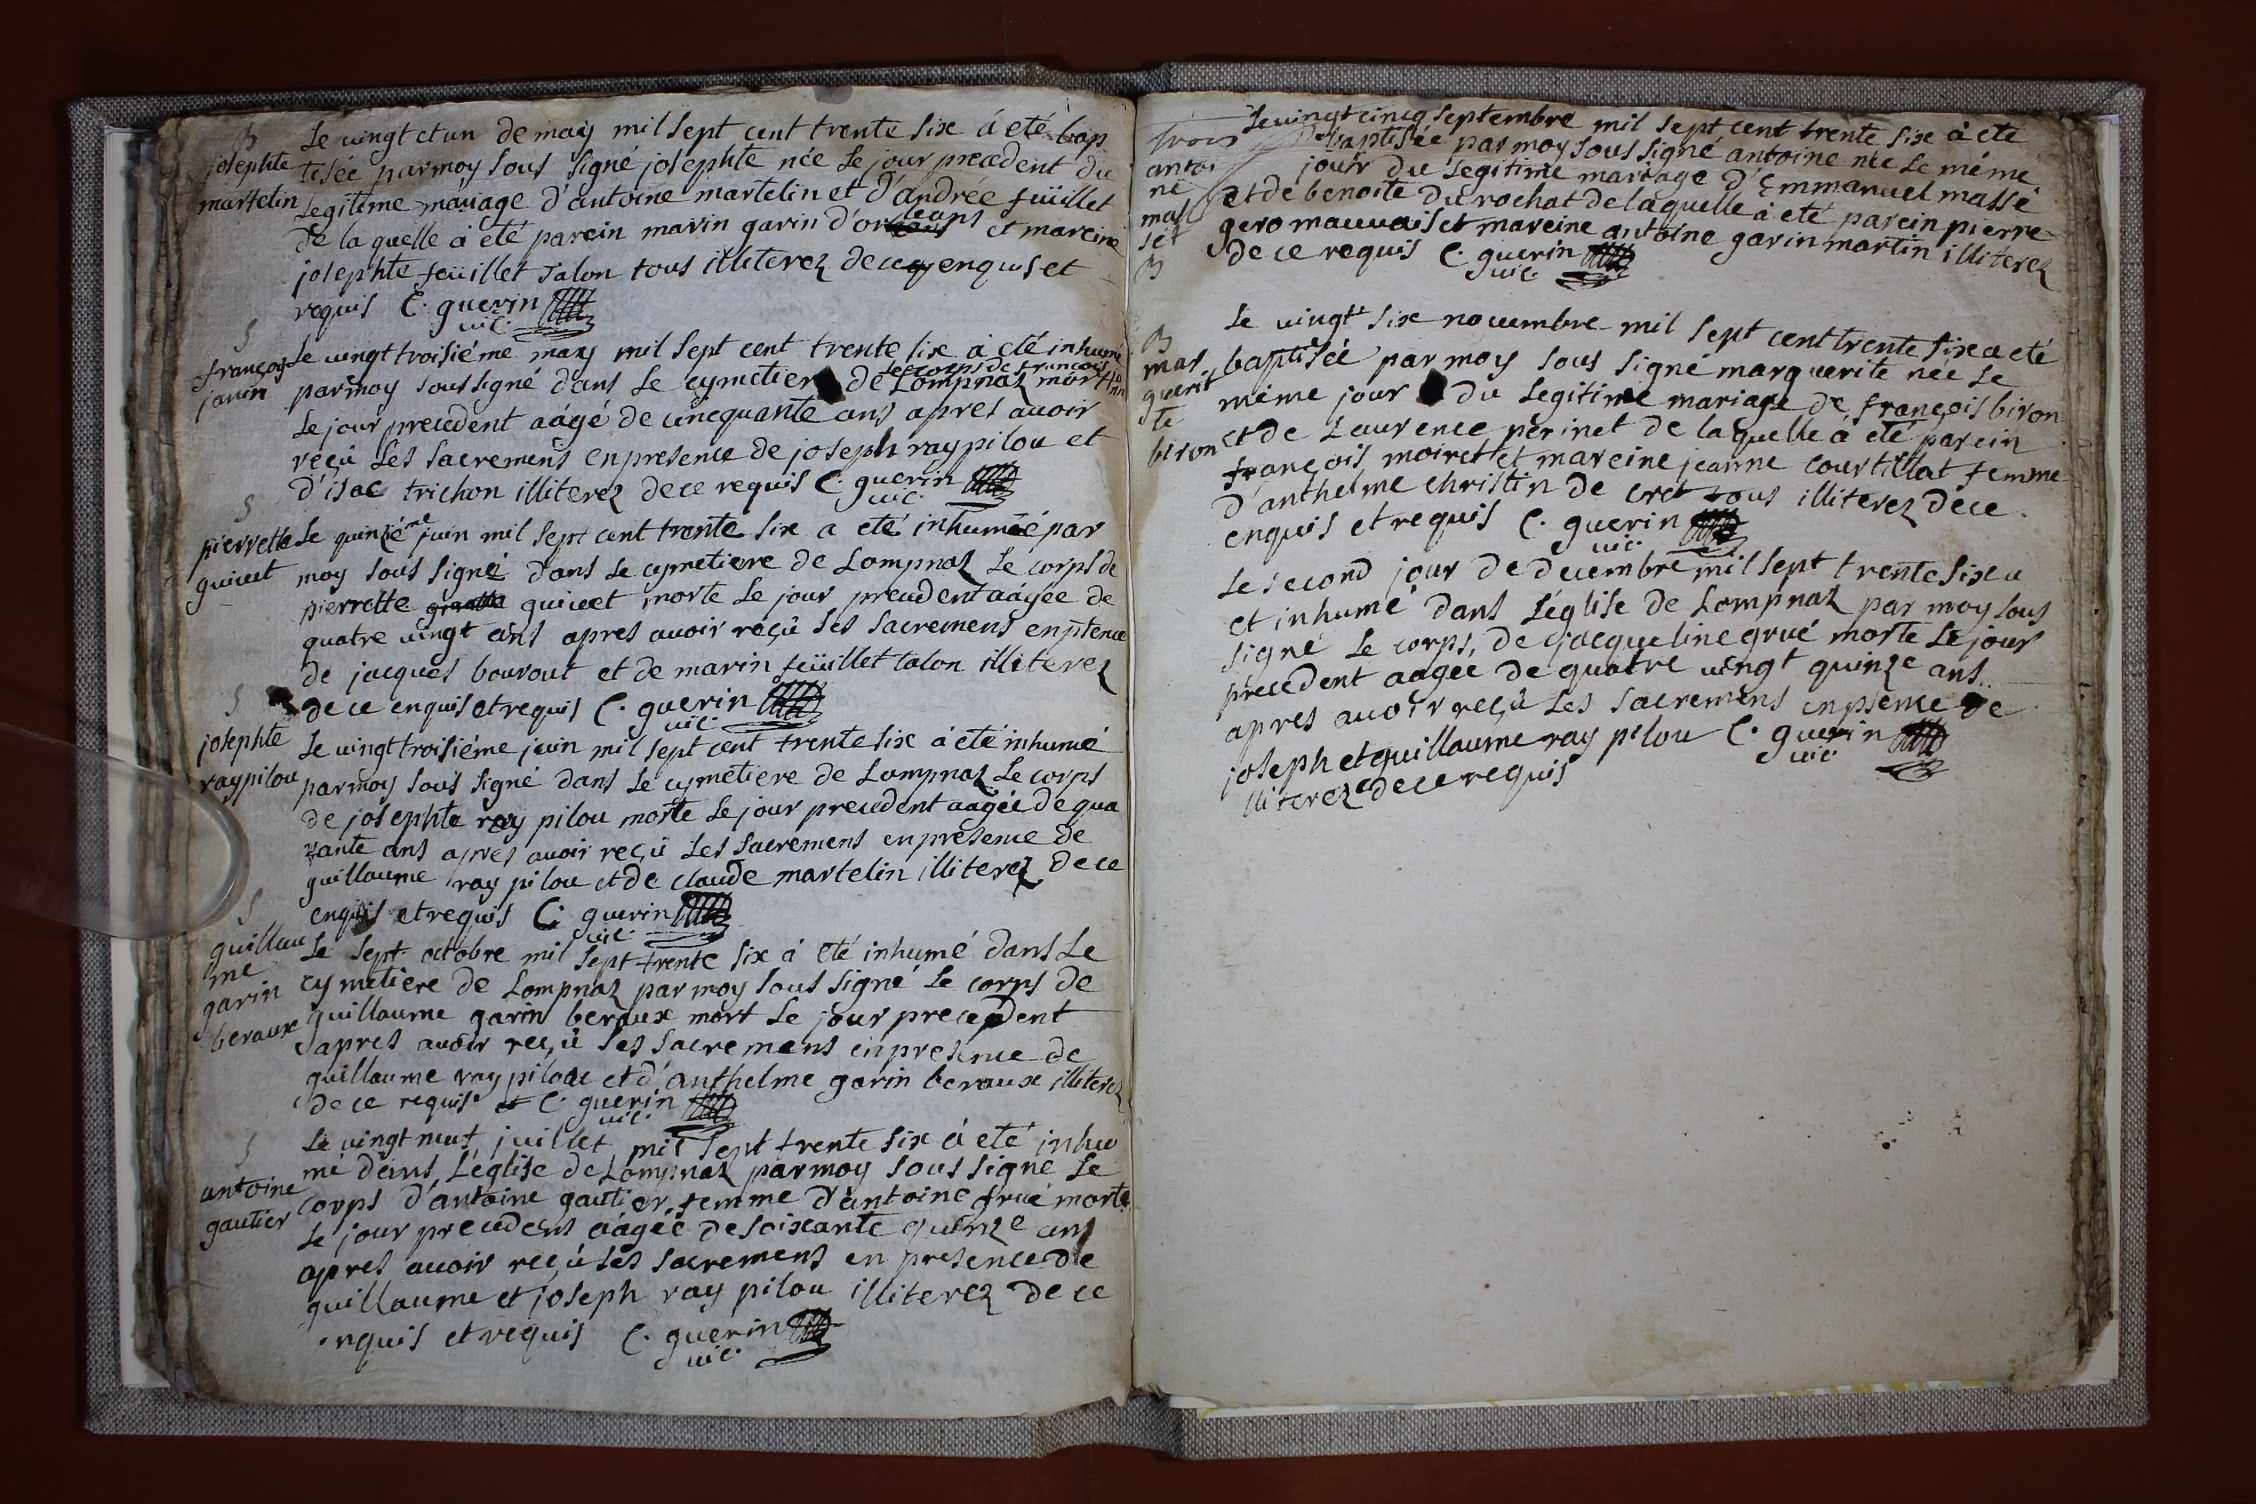 B
josephte
martelin
Le vingt et un de may mil sept cent trente six á eté bap
tisée par moy sous signé josephte née le jour precedent du
legitime máriage d'antoine martelin et d'andrée feüillet
de la quelle á eté parein marin garin d'orleans et mareine
josephte feüillet talon tous illiterez de ce enquis et
requis C. guerin
vic.
S
françois
janin
Le vingt troisiéme may mil sept cent trente six á eté inhumé
le corps de françois
par moy sous signé dans le cymetiere de Lompnaz mort
le jour precedent aágé de cincquante ans apres avoir
reçû les sacremens en presence de joseph ray pilou et
d'isac trichon illiterez de ce requis C. guerin
vic.
S
pierrette
quivet
Le quinziéme juin mil sept cent trente six a eté inhumée par
moy sous signé dans le cymetiere de Lompnaz le corps de
pierrette quivet morte le jour precedent aágée de
quatre vingt ans apres avoir reçû ses sacremens en ptence
de jacques bourout et de marin feüillet talon illiterez
de ce enquis et requis C. guerin
vic.
S
josephte
ray pilou
Le vingt troisiéme juin mil sept cent trente six á eté inhumé
par moy sous signé dans le cymetiere de Lompnaz le corps
de josephte ray pilou morte le jour precedent aagée de qua
rante ans apres avoir reçû les sacremens en presence de
guillaume ray pilou et de claude martelin illiterez de ce
enquis et requis C. guerin
vic.
S
guillau
me
garin
beraux
Le sept octobre mil sept trente six á eté inhumé dans le
cymetiere de Lompnaz par moy sous signé le corps de
guillaume garin beraux mort le jour precedent
apres avoir reçû ses sacremens en presence de
guillaume ray pilou et d'anthelme garin beraux illiterez
de ce requis et C. guerin
vic.
S
antoine
gautier
Le vingt neuf juillet mil sept trente six á eté inhu
mé dans l'église de Lompnaz par moy sous signé le
corps d'antoine gautier femme d'antoine grué morte
le jour precedent aágée de soixante quinze ans
apres avoir reçû ses sacremens en presence de
guillaume et joseph ray pilou illiterez de ce
enquis et requis C. guerin
vic.
antoi
ne
mas
sét
B
Le vingt cinq septembre mil sept cent trente six á eté
baptisée par moy sous signé antoine née le méme
jour du legitime mariage d'Emmanuel massé
et de benoite du rochat de laquelle á eté parein pierre
gero mauvais et mareine antoine garin martin illiterez
de ce requis C. guerin
vic.
B
mar
guerit
te
biron
Le vingt six novembre mil sept cent trente six a eté
baptisée par moy sous signé marguerite née le
méme jour du legitime mariage de françois biron
et de Laurence perinet de laquelle á eté parein
françois moiret et mareine jeanne courtillat femme
d'anthelme christin de cret tous illiterez de ce
enquis et requis C. guerin
vic.
Le second jour de decembre mil sept trente six a
eté inhumé dans l'église de Lompnaz par moy sous
signé le corps, de jacqueline grué morte le jour
precedent aagée de quatre vingt quinze ans
apres avoir reçû les sacremens en psence de
joseph et guillaume ray pilou C. guerin
vic.
illiterez de ce requis